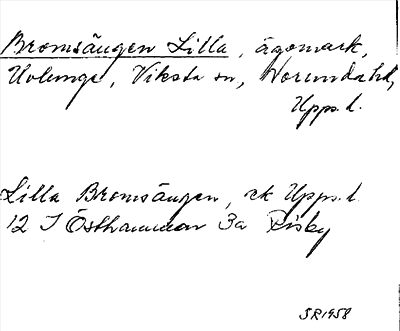 Bromsängen Lilla, ägomark,
Uvlunge, Viksta sn, Norunda hd,
Upps. l.
Lilla Bromsängen, ek Upps. l.
12 I Östhammar 3a Risby
SR 1958